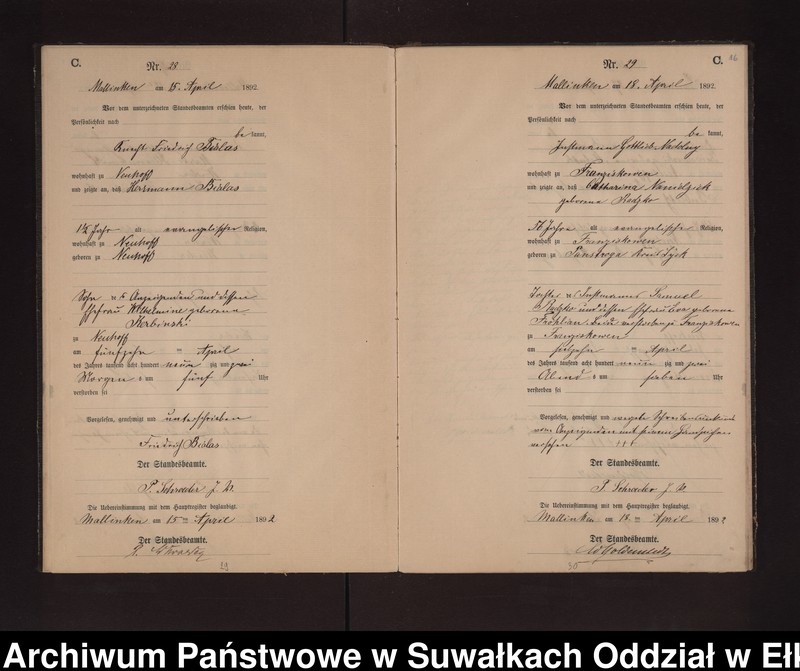 C.
Nr. 28
Mallinken am 15. April 1892.
Vor dem unterzeichneten Standesbeamten erschien heute, der
Persönlichkeit nach
be kannt,
Knecht Friedrich Bielas
wohnhaft zu Neuhoff
und zeigte an, daß Herrmann Bielas
1½ Jahr alt evangelischer Religion,
wohnhaft zu Neuhoff
geboren zu Neuhoff
Sohn des Anzeigenden und dessen
Ehefrau Wilhelmine geborene
zu Neuhoff
am fünfzehn ten April
des Jahres tausend acht hundert neun zig und zwei
Morgen s um fünf Uhr
verstorben sei
Vorgelesen, genehmigt und unterschrieben
Friedrich Bielas
Der Standesbeamte.
P. Schroeder
Die Uebereinstimmung mit dem Hauptregister beglaubigt.
Mallinken am 15 ten April 1892
Der Standesbeamte.
29
C.
16
Nr. 29
Mallinken am 18. April 1892.
Vor dem unterzeichneten Standesbeamten erschien heute, der
Persönlichkeit nach
be kannt,
Instmann Gottlieb
wohnhaft zu Franziskowen
und zeigte an, daß Catharina
geborene
56 Jahre alt evangelische Religion,
wohnhaft zu Franziskowen
geboren zu Kreis Lyck
Tochter des Instmanns Samuel
und dessen Ehefrau Eva geborene
beide verstorben zu Franziskowen
zu Franziskowen
am ten April
des Jahres tausend acht hundert neun zig und zwei
Abend s um sieben Uhr
verstorben sei
Vorgelesen, genehmigt und wegen Schreibensunkunde
vom Anzeigenden mit seinem Handzeichen
versehen +++
Der Standesbeamte.
P. Schroeder
Die Uebereinstimmung mit dem Hauptregister beglaubigt.
Mallinken am 18 ten April 1892
Der Standesbeamte.
30
Archiwum Państwowe w Suwałkach Oddział w Eł